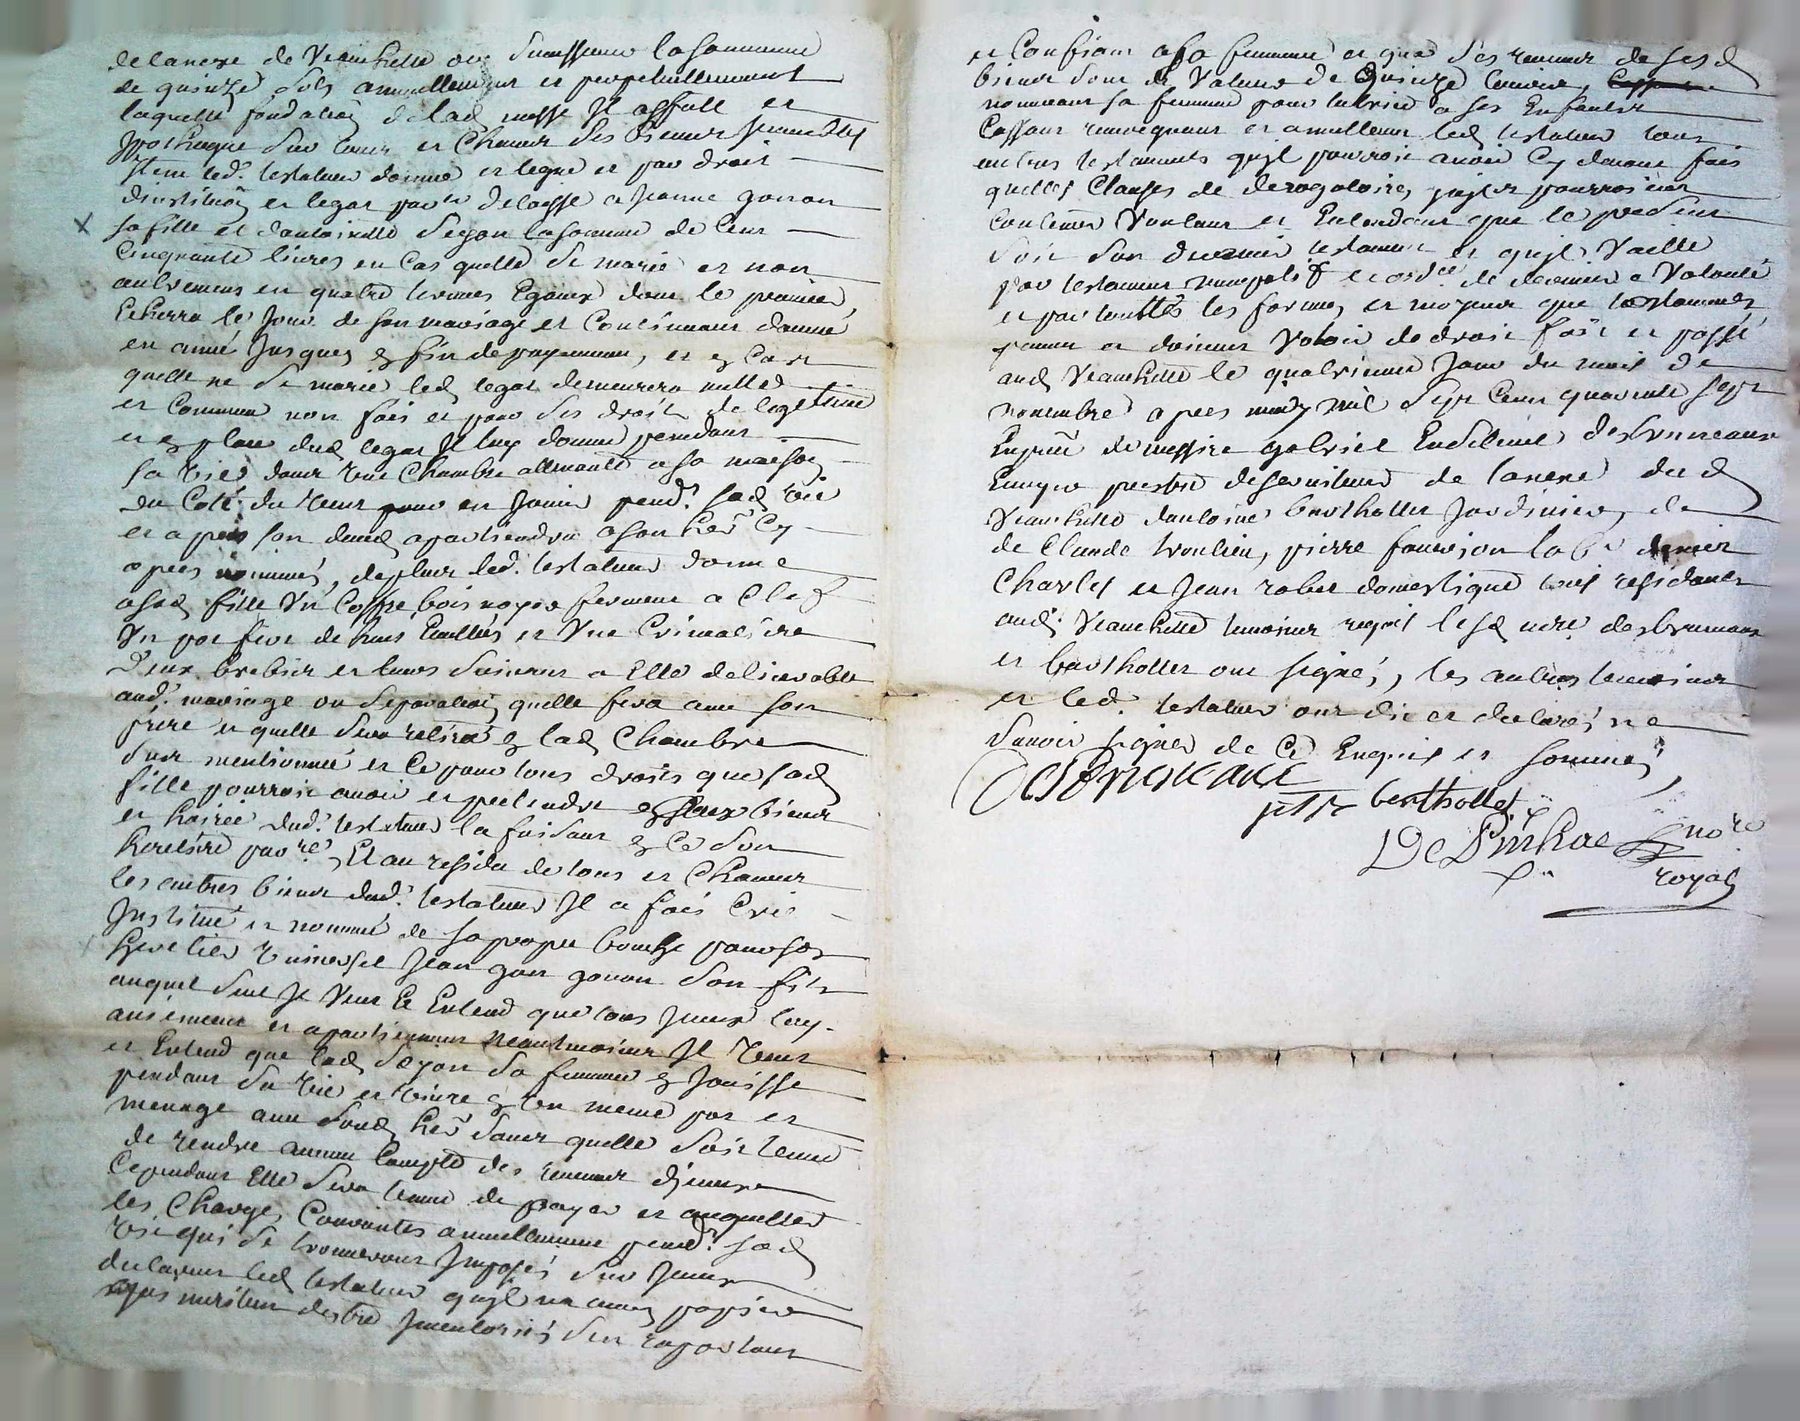 de lanexe de Veauchette ou successeur la somme
de quinze sols annuellement et perpetuellement
laquelle fondation de lad messe Il assoit et
Jpotheque sur tous et Chacun ses Biens presents
Item led.t testateur donne et legue et par droit
dinstitution et legat par luy delaisse a Jeanne gonon
sa fille et dantoinette Seyon la somme de Cent
Cinquante livres en Cas quelle se marie et non
autrement en quatre termes Egaux dont le premier
Echerra le Jour de son mariage et Continuant dannee
en année Jusques a fin de payement, et en Cas
quelle ne se marie led legat demeurera nulle
et Comme non fait et pour ses droits de legitime
et en place dud legat Il luy donne pendant
sa vie dans une Chambre attenante a sa maison
du Coté du vent pour en Jouir pend.t sad vie
et apres son deced apartiendra a son her Cy
apres nommé, de plus led.t testateur donne
a sad fille Un Coffre bois noyer fermant a Clef
Un pot fer de huit Ecuelles et Une Crimaliere
Deux brebis et leurs suivants a Elle delivrable
aud.t mariage ou separation quelle fera avec son
frere et quelle sera retirée en lad Chambre
sus mentionnée et Ce pour tous droits que sad
fille pourroit avoir et pretendre en Ses biens
et hoirie dud.t testateur la faisant en Ce son
heretiere par.re, Et au residu de tous et Chacuns
les autres biens dud.t testateur Il a fait Cree
Institué et nommé de sa propre bouche pour son
heretier universel Jean gonon son fils
auquel seul Il Veut Et Entend que tous Iceux luy
aviennent et apartiennent neantmoins Il veut
et Entend que lad Seyon sa femme en Jouisse
pendant sa vie et vivre en un meme pot et
menage avec sond her sans quelle soit tenue
de rendre aucun Compte des revenus dJceux
Cependant Elle sera tenue de payer et acquitter
les Charges Courantes annuellement pend.t sad
vie qui se trouveront Imposés sur Iceux
declarant led testateur quil na aucun papier
qui meritent destre Inventoriés sen raportant
et Confiant a sa femme et que des revenus de sesd
biens sont de Valeur de Quinze livres,
nommant sa femme pour tutrice a ses Enfants
Cassant revoquant et annullant led testateur tous
autres testaments quil pourroit avoir Cy devant fait
quelles Clauses de derogatoires quils pourroient
Contenir Voulant et Entendant que le present
soit son dernier testament et quil Vaille
par testament nuncupatif et ord.ce de derniere Volonté
et par touttes les formes et moyens que testaments
peuvent et doivent Valoir de droit fait et passé
aud Veauchette le quatrieme Jour du mois de
novembre apres midy mil sept Cent quarante sept
En pnce de messire gabriel desbruneaux
Ecuyer prestre deserviteur de lanexe dud
Veauchette dantoine berthollet Jardinier, de
de Claude pierre
Charles et Jean rober domestique tous residants
aud.t Veauchette temoins requis lesd sieurs desbruneaux
et bertholler ont signé, les autres temoins
et led.t testateur ont dit et declaré ne
savoir signer de Ce Enquis et sommé,
Desbruneaux
ptre berthollet
not.re
royal